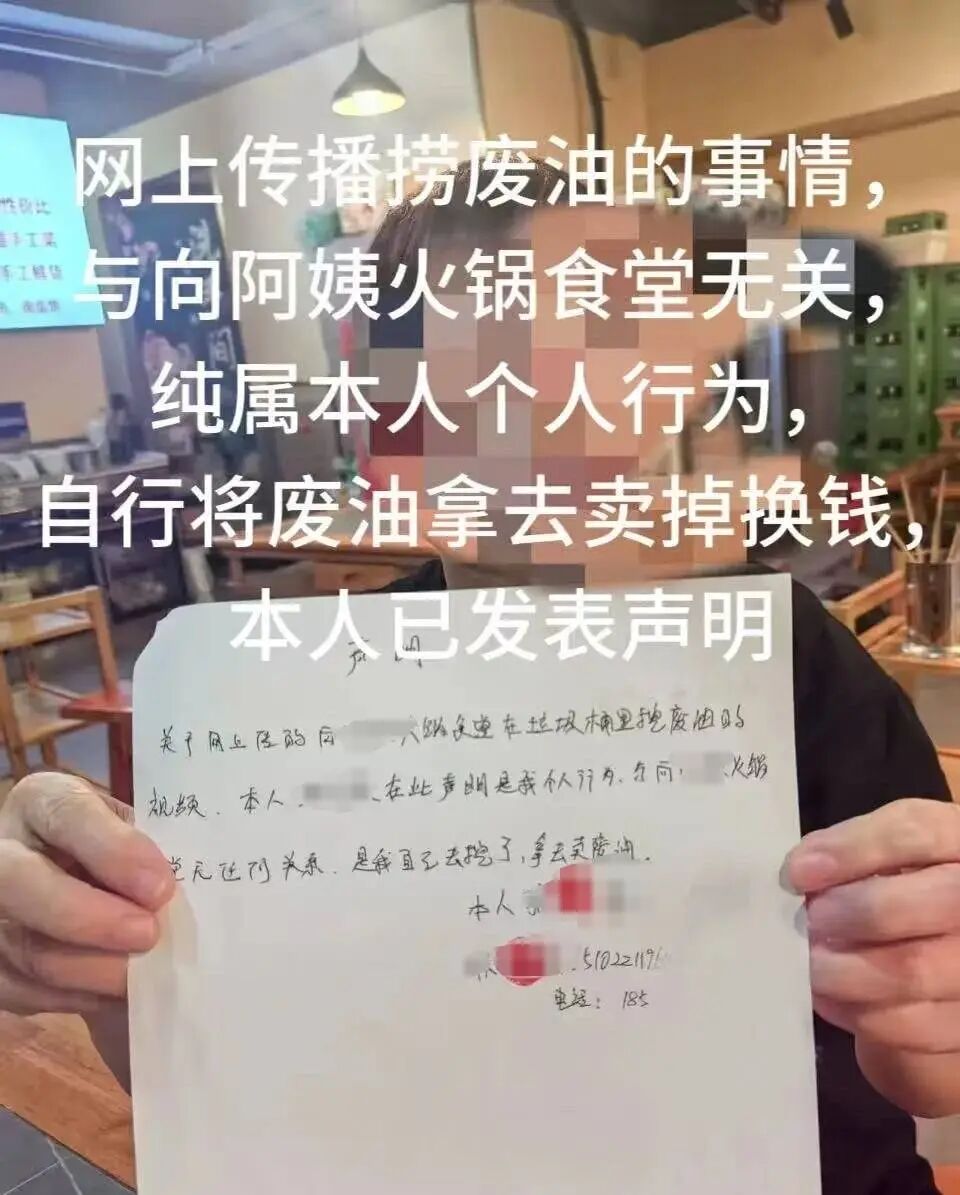 网上传播捞废油的事情，
与向阿姨火锅食堂无关，
纯属本人个人行为，
自行将废油拿去卖掉换钱，
本人已发表声明
性价比
手工菜
手工酸
声明
关于网上传的向 火锅食堂在垃圾桶里捞废油的
视频．本人 在此声明是我个人行为．与向 火锅
堂无任何关系．是我自己去捞了，拿去卖废油．
本人
510221196
电话：185